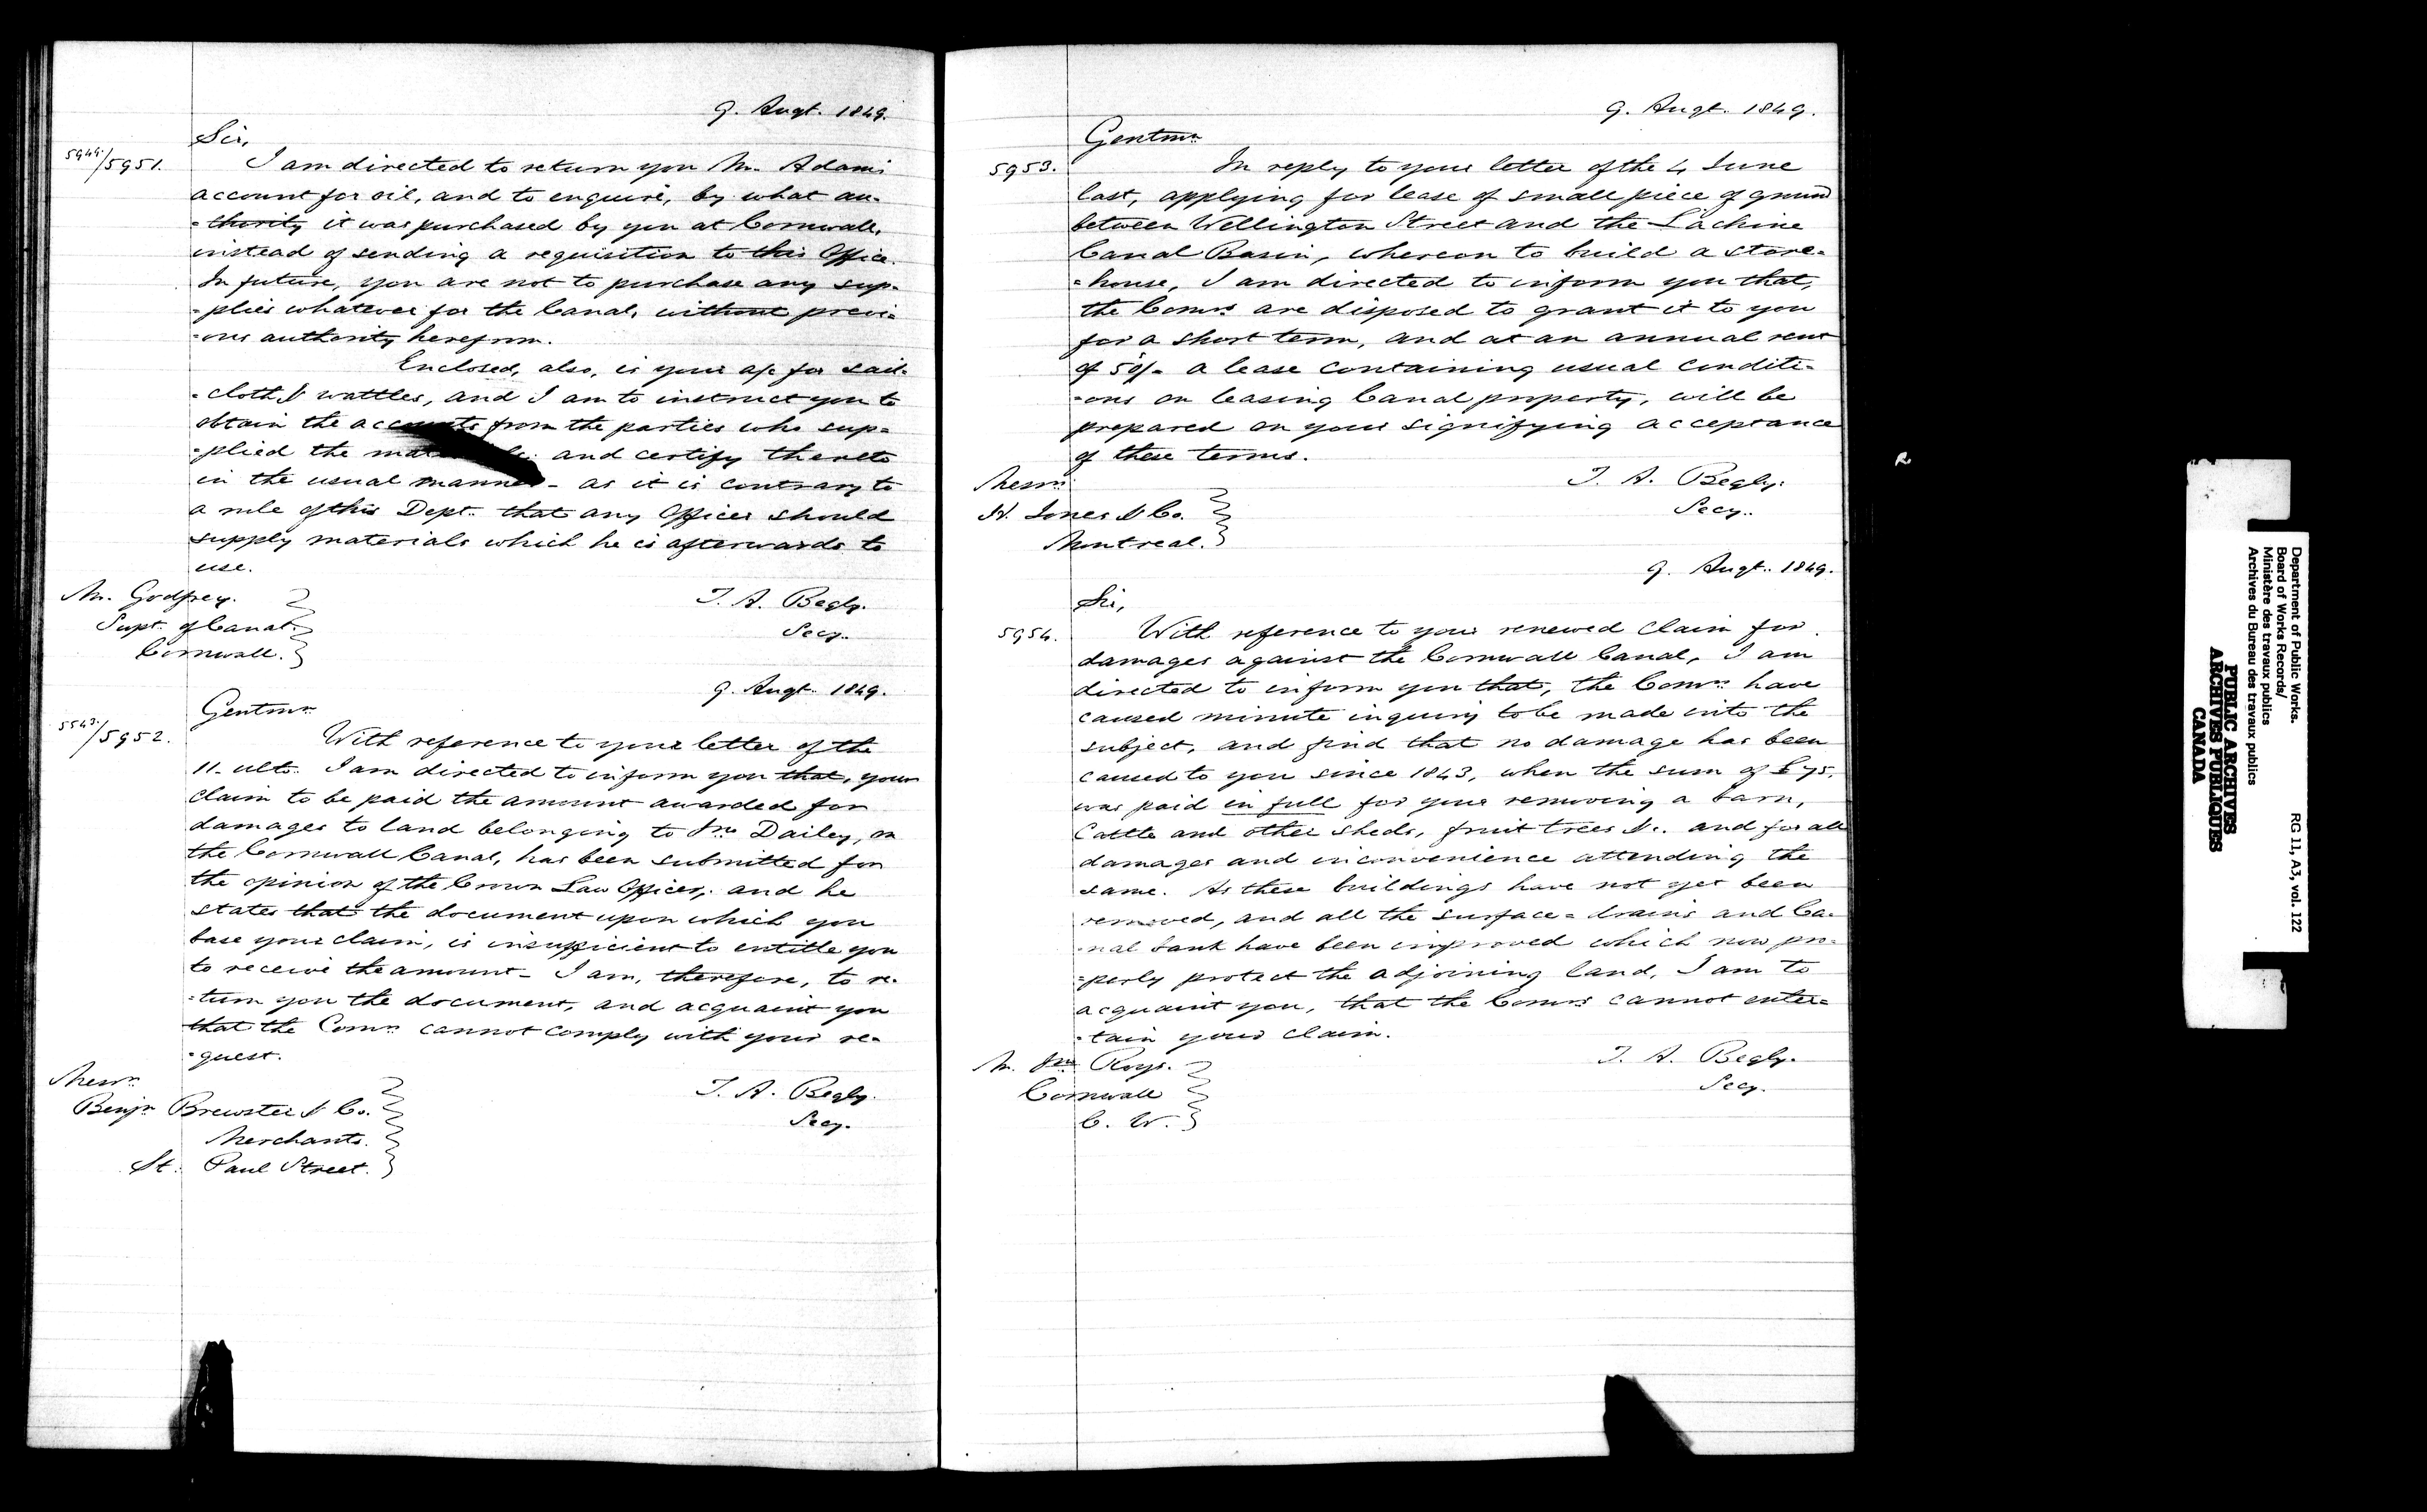 9. Augt. 1849.
Sir,
5949./5951.
I am directed to return you Mr. Adams
account for oil, and to enquire, by what au-
-thority it was purchased by you at Cornwall,
instead of sending a requisition to this Office.
In future, you are not to purchase any sup-
-plies whatever for the Canal, without previ-
-ous authority herefrom.
Enclosed, also, is your a/c for sail-
-cloth & wattles, and I am to instruct you to
obtain the accounts from the parties who sup-
-plied the and certify thereto
in the usual manner - as it is contrary to
a rule of this Dept. that any Officer should
supply materials which he is afterwards to
use.
Mr. Godfrey.
Supt. of Canal.
Cornwall.
T. A. Begly.
Secy.
9. Augt. 1849.
Gentmn
5543./5952.
With reference to your letter of the
11. ulto. I am directed to inform you that, your
claim to be paid the amount awarded for
damages to land belonging to Jno Dailey, on
the Cornwall Canal, has been submitted for
the opinion of the Crown Law Officer, and he
states that the document upon which you
base your claim, is insufficient to entitle you
to receive the amount - I am, therefore, to re-
-turn you the document, and acquaint you
that the Comrs cannot comply with your re-
-quest.
Messrs
Benjn Brewster & Co.
Merchants.
St. Paul Street.
T. A. Begly.
Secy.
9. Augt. 1849.
Gentmn
5953.
In reply to your letter of the 4 June
last, applying for lease of small piece of ground
between Wellington Street and the Lachine
Canal Basin, whereon to build a store-
-house, I am directed to inform you that,
the Comrs are disposed to grant it to you
for a short term, and at an annual rent
of 5%- a lease containing usual conditi-
-ons on leasing Canal property, will be
prepared on your signifying acceptance
of these terms.
Messrs
H. Jones & Co.
Montreal.
T. A. Begly.
Secy.
9. Augt. 1849.
Sir,
5954.
With reference to your renewed claim for
damages against the Cornwall Canal, I am
directed to inform you that, the Comrs have
caused minute inquiry to be made into the
subject, and find that no damage has been
caused to you since 1843, when the sum of £75.
was paid in full for your removing a barn,
Cattle and other sheds, fruit trees &c. and for all
damages and inconvenience attending the
same. As these buildings have not yet been
removed, and all the surface-drains and Ca-
-nal bank have been improved which now pro-
-perly protect the adjoining land, I am to
acquaint you, that the Comrs cannot enter-
-tain your claim.
Mr. Jno Roys.
Cornwall
C. W.
T. A. Begly.
Secy.
Department of Public Works.
Board of Works Records/
Ministère des travaux publics
Archives du Bureau des travaux publics
RG 11, A3, vol. 122
PUBLIC ARCHIVES
ARCHIVES PUBLIQUES
CANADA